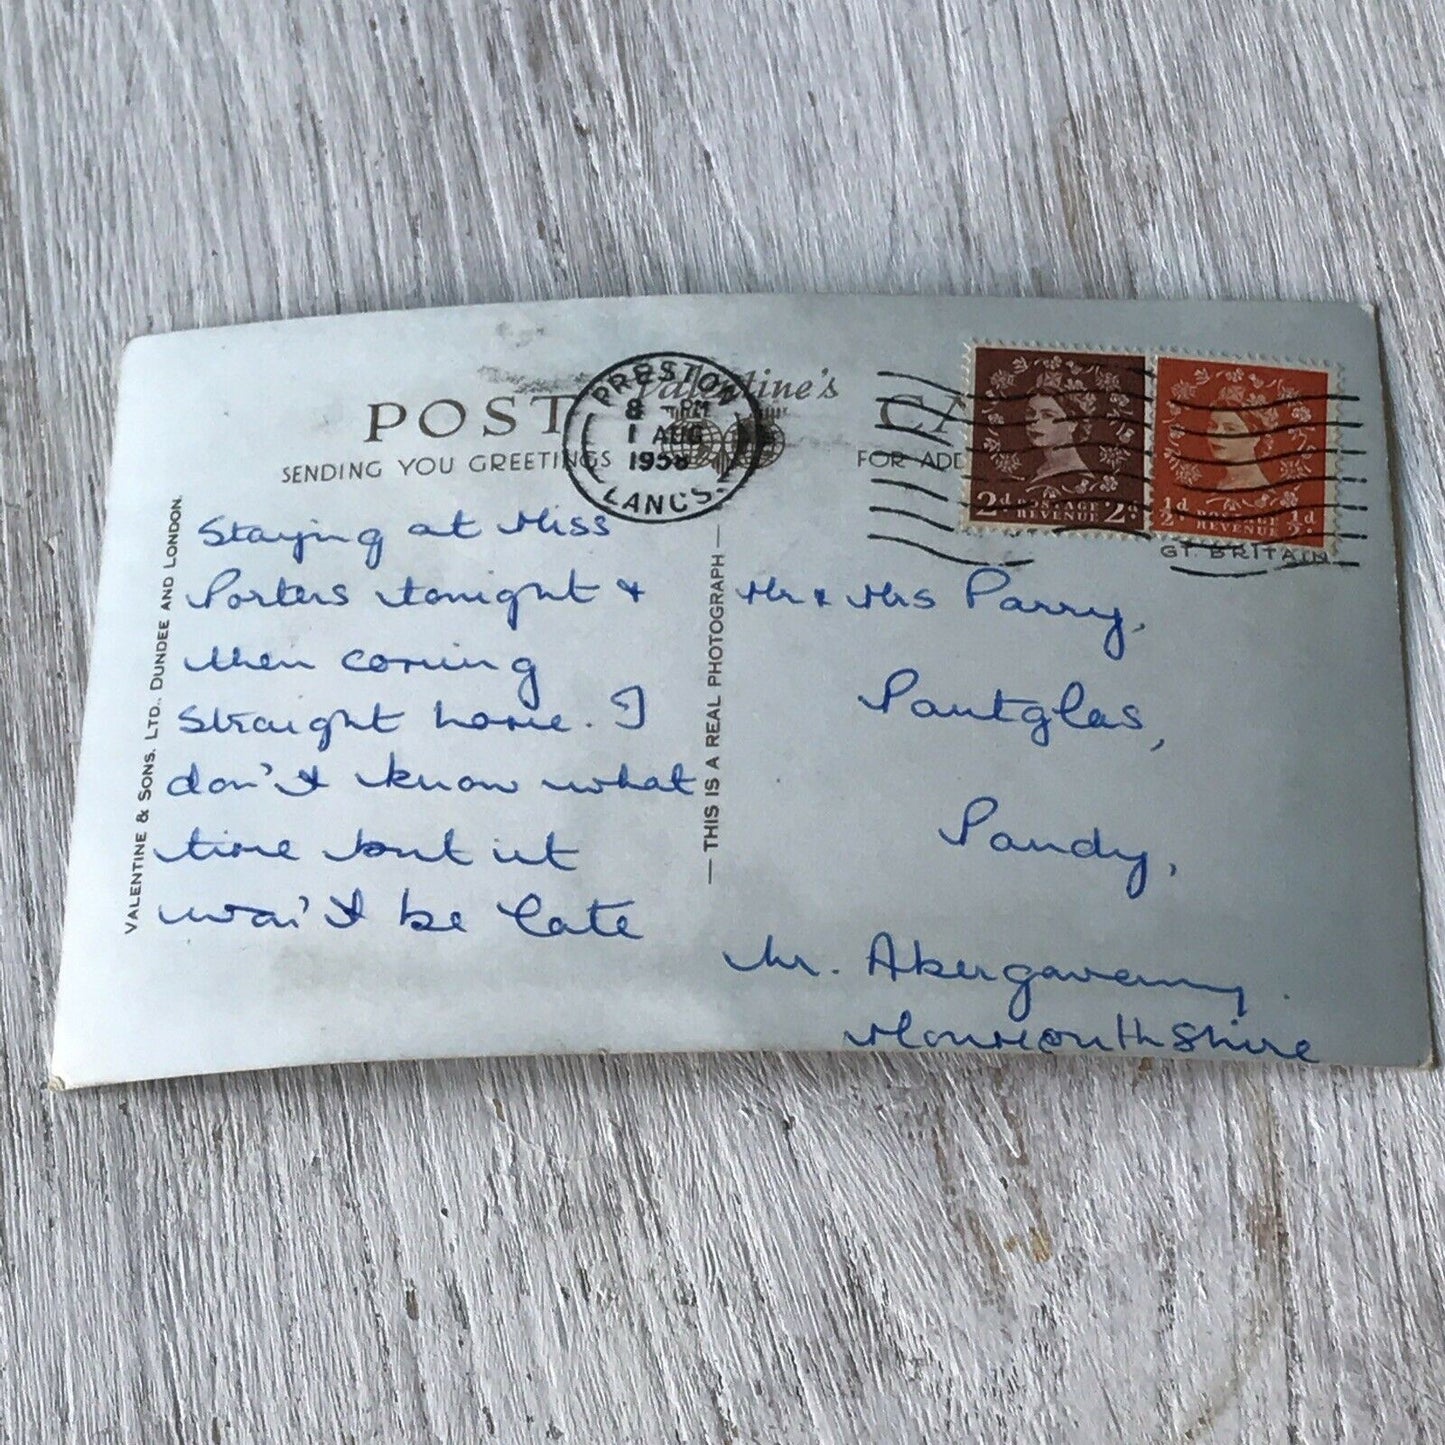 POST CA
Valentine's
SENDING YOU GREETINGS
FOR ADD
PRESTON
8 PM
1 AUG
1958
LANCS.
2d POSTAGE 2d
REVENUE
½d POSTAGE ½d
REVENUE
GT BRITAIN
VALENTINE & SONS. LTD., DUNDEE AND LONDON.
— THIS IS A REAL PHOTOGRAPH —
Staying at Miss
Porters tonight +
then coming
straight home. I
don't know what
time but it
won't be late
Mr & Mrs Parry,
Pantglas,
Pandy,
Nr. Abergavenny.
Monmouthshire